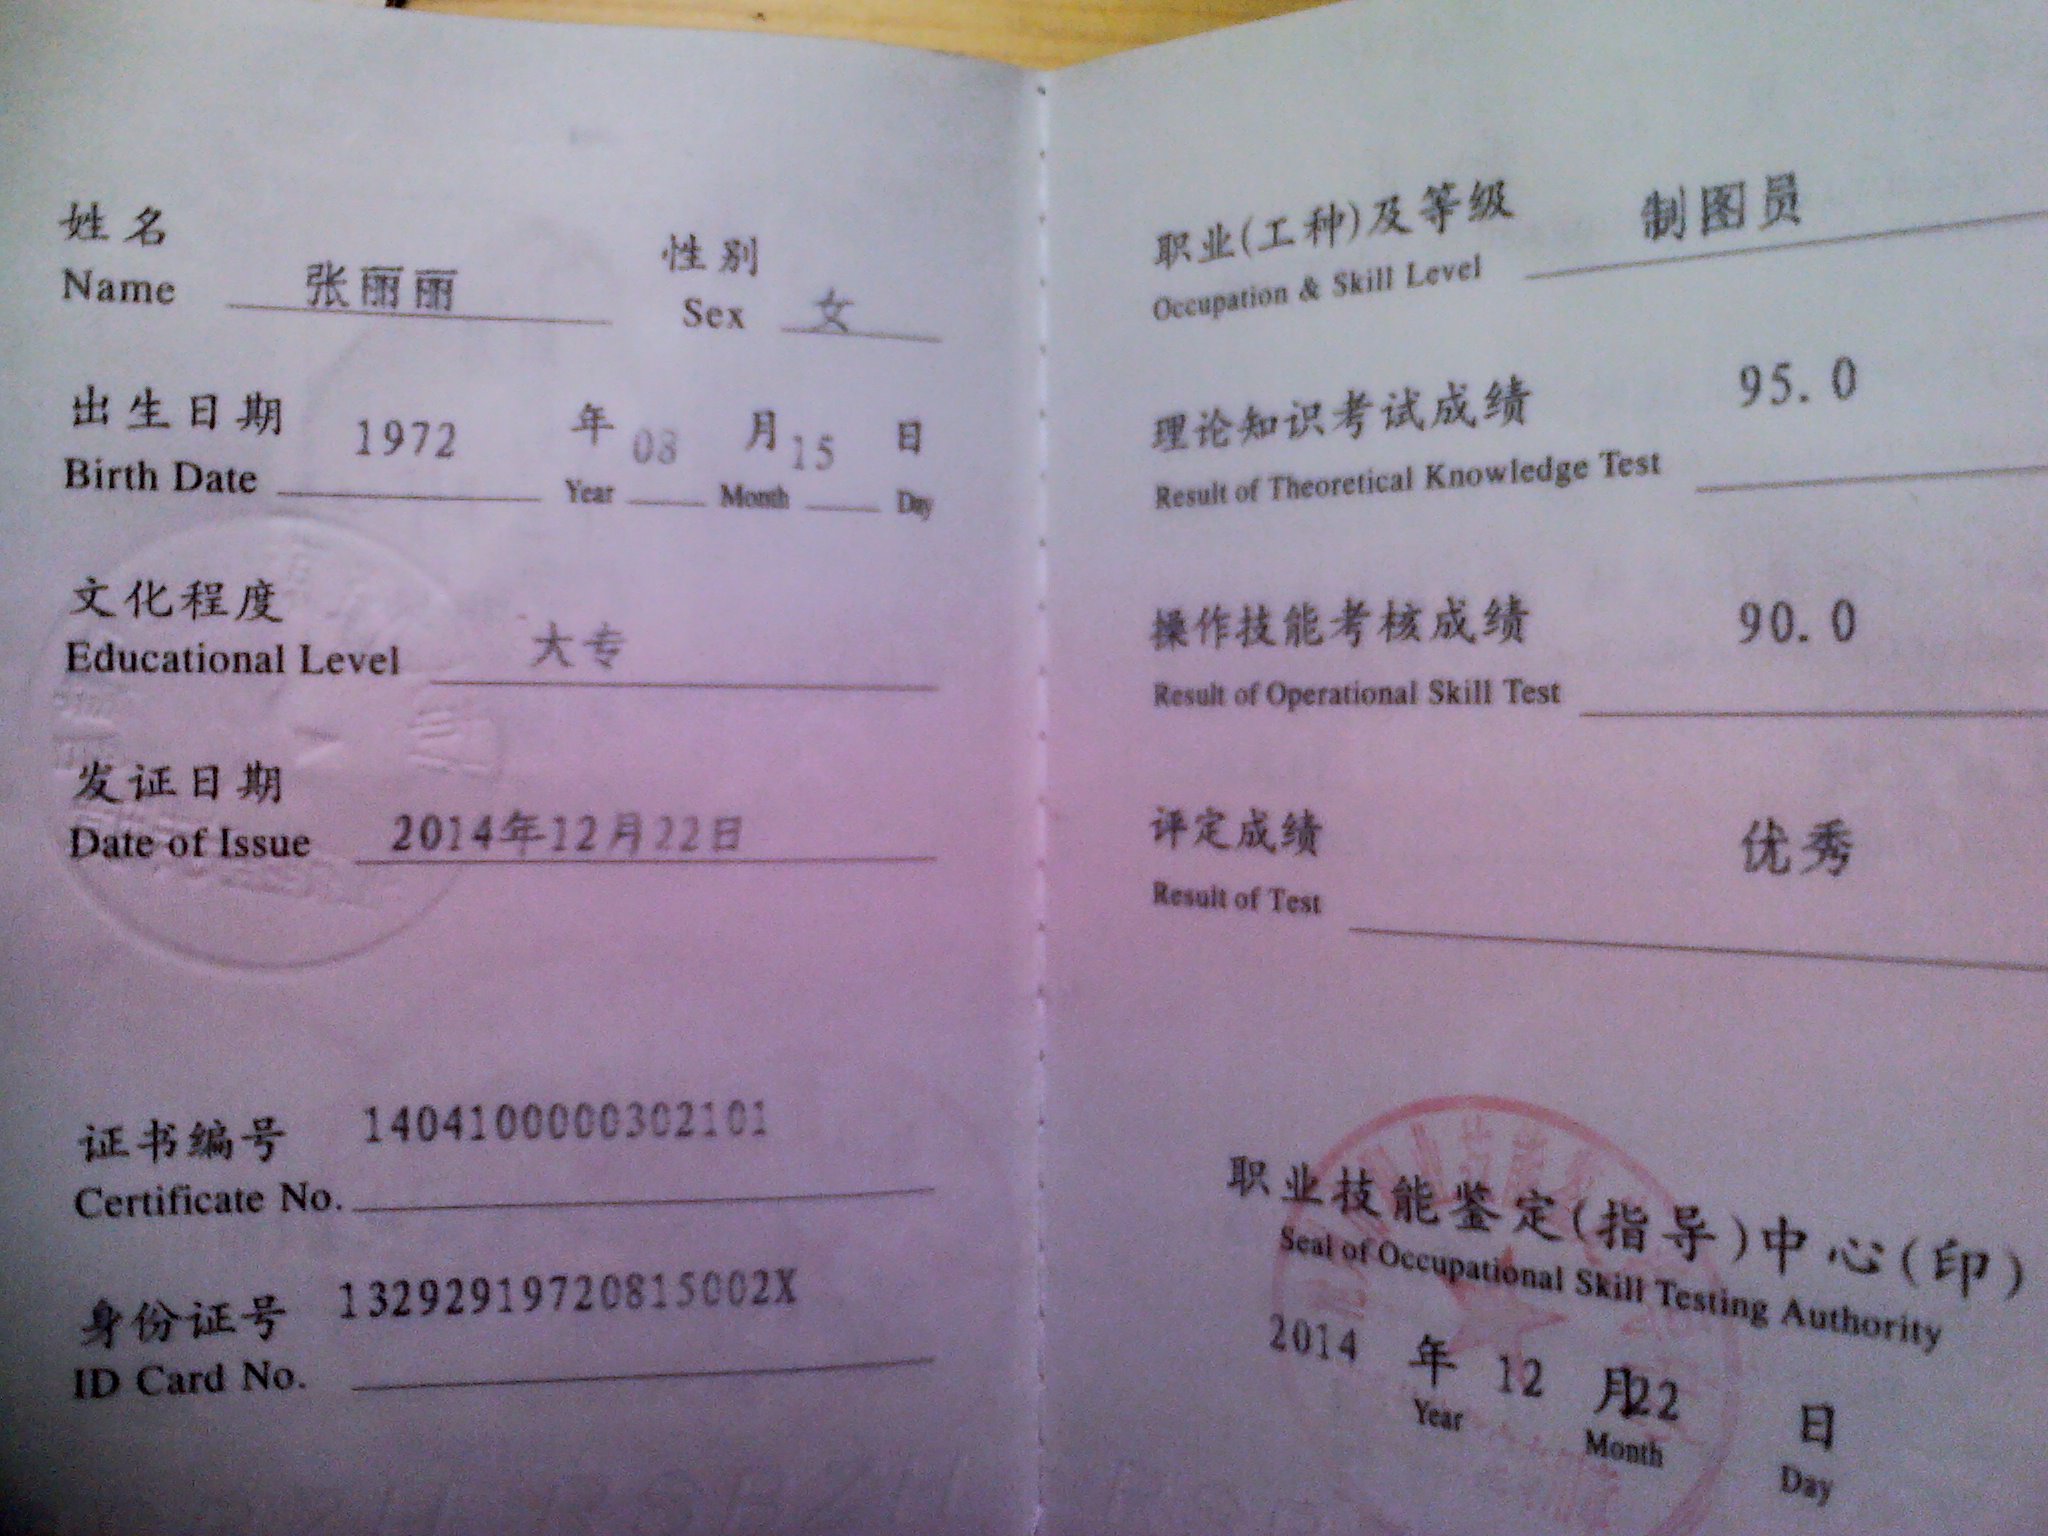 姓名 张丽丽 性别 女
Name Sex
出生日期 1972 年 08 月 15 日
Birth Date Year Month Day
文化程度 大专
Educational Level
发证日期 2014年12月22日
Date of Issue
证书编号 1404100000302101
Certificate No.
身份证号 13292919720815002X
ID Card No.
职业(工种)及等级 制图员
Occupation & Skill Level
理论知识考试成绩 95.0
Result of Theoretical Knowledge Test
操作技能考核成绩 90.0
Result of Operational Skill Test
评定成绩 优秀
Result of Test
职业技能鉴定(指导)中心(印)
Seal of Occupational Skill Testing Authority
2014 年 12 月 22 日
Year Month Day